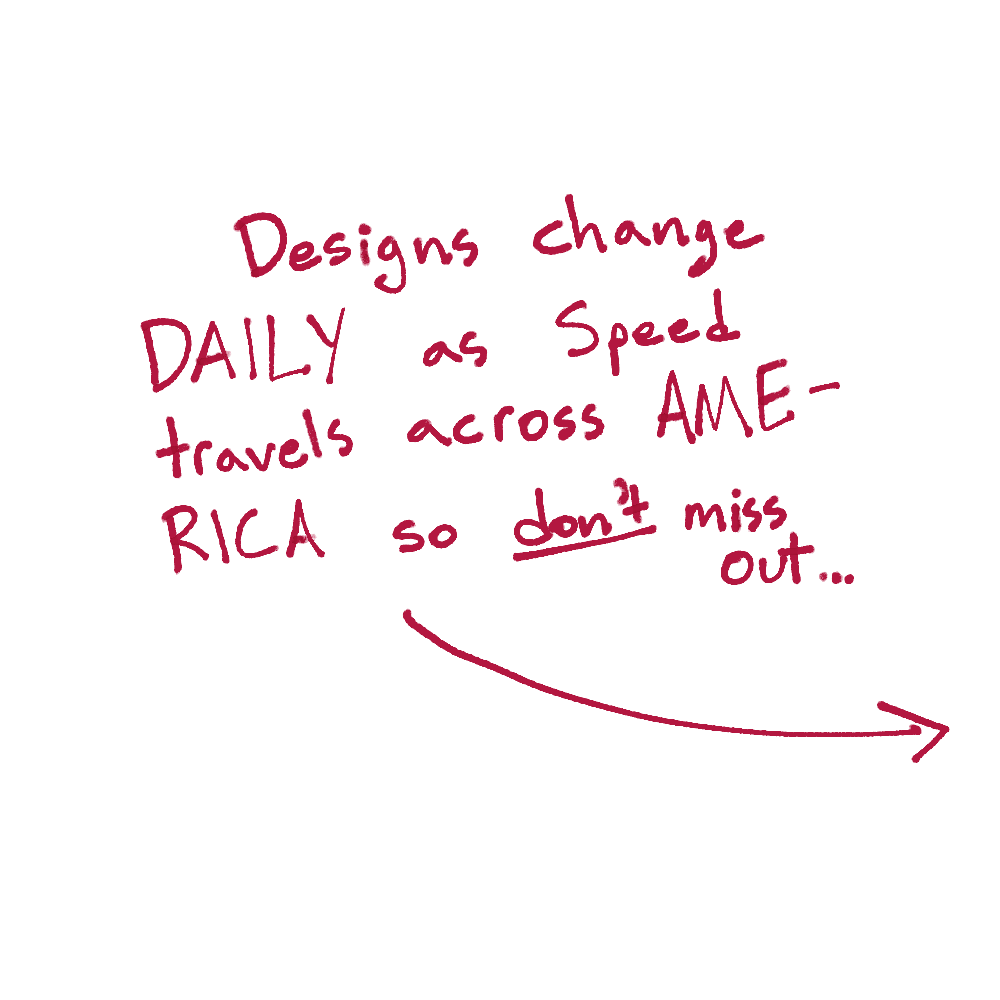 Designs change
DAILY as Speed
travels across AME-
RICA so don't miss
out...